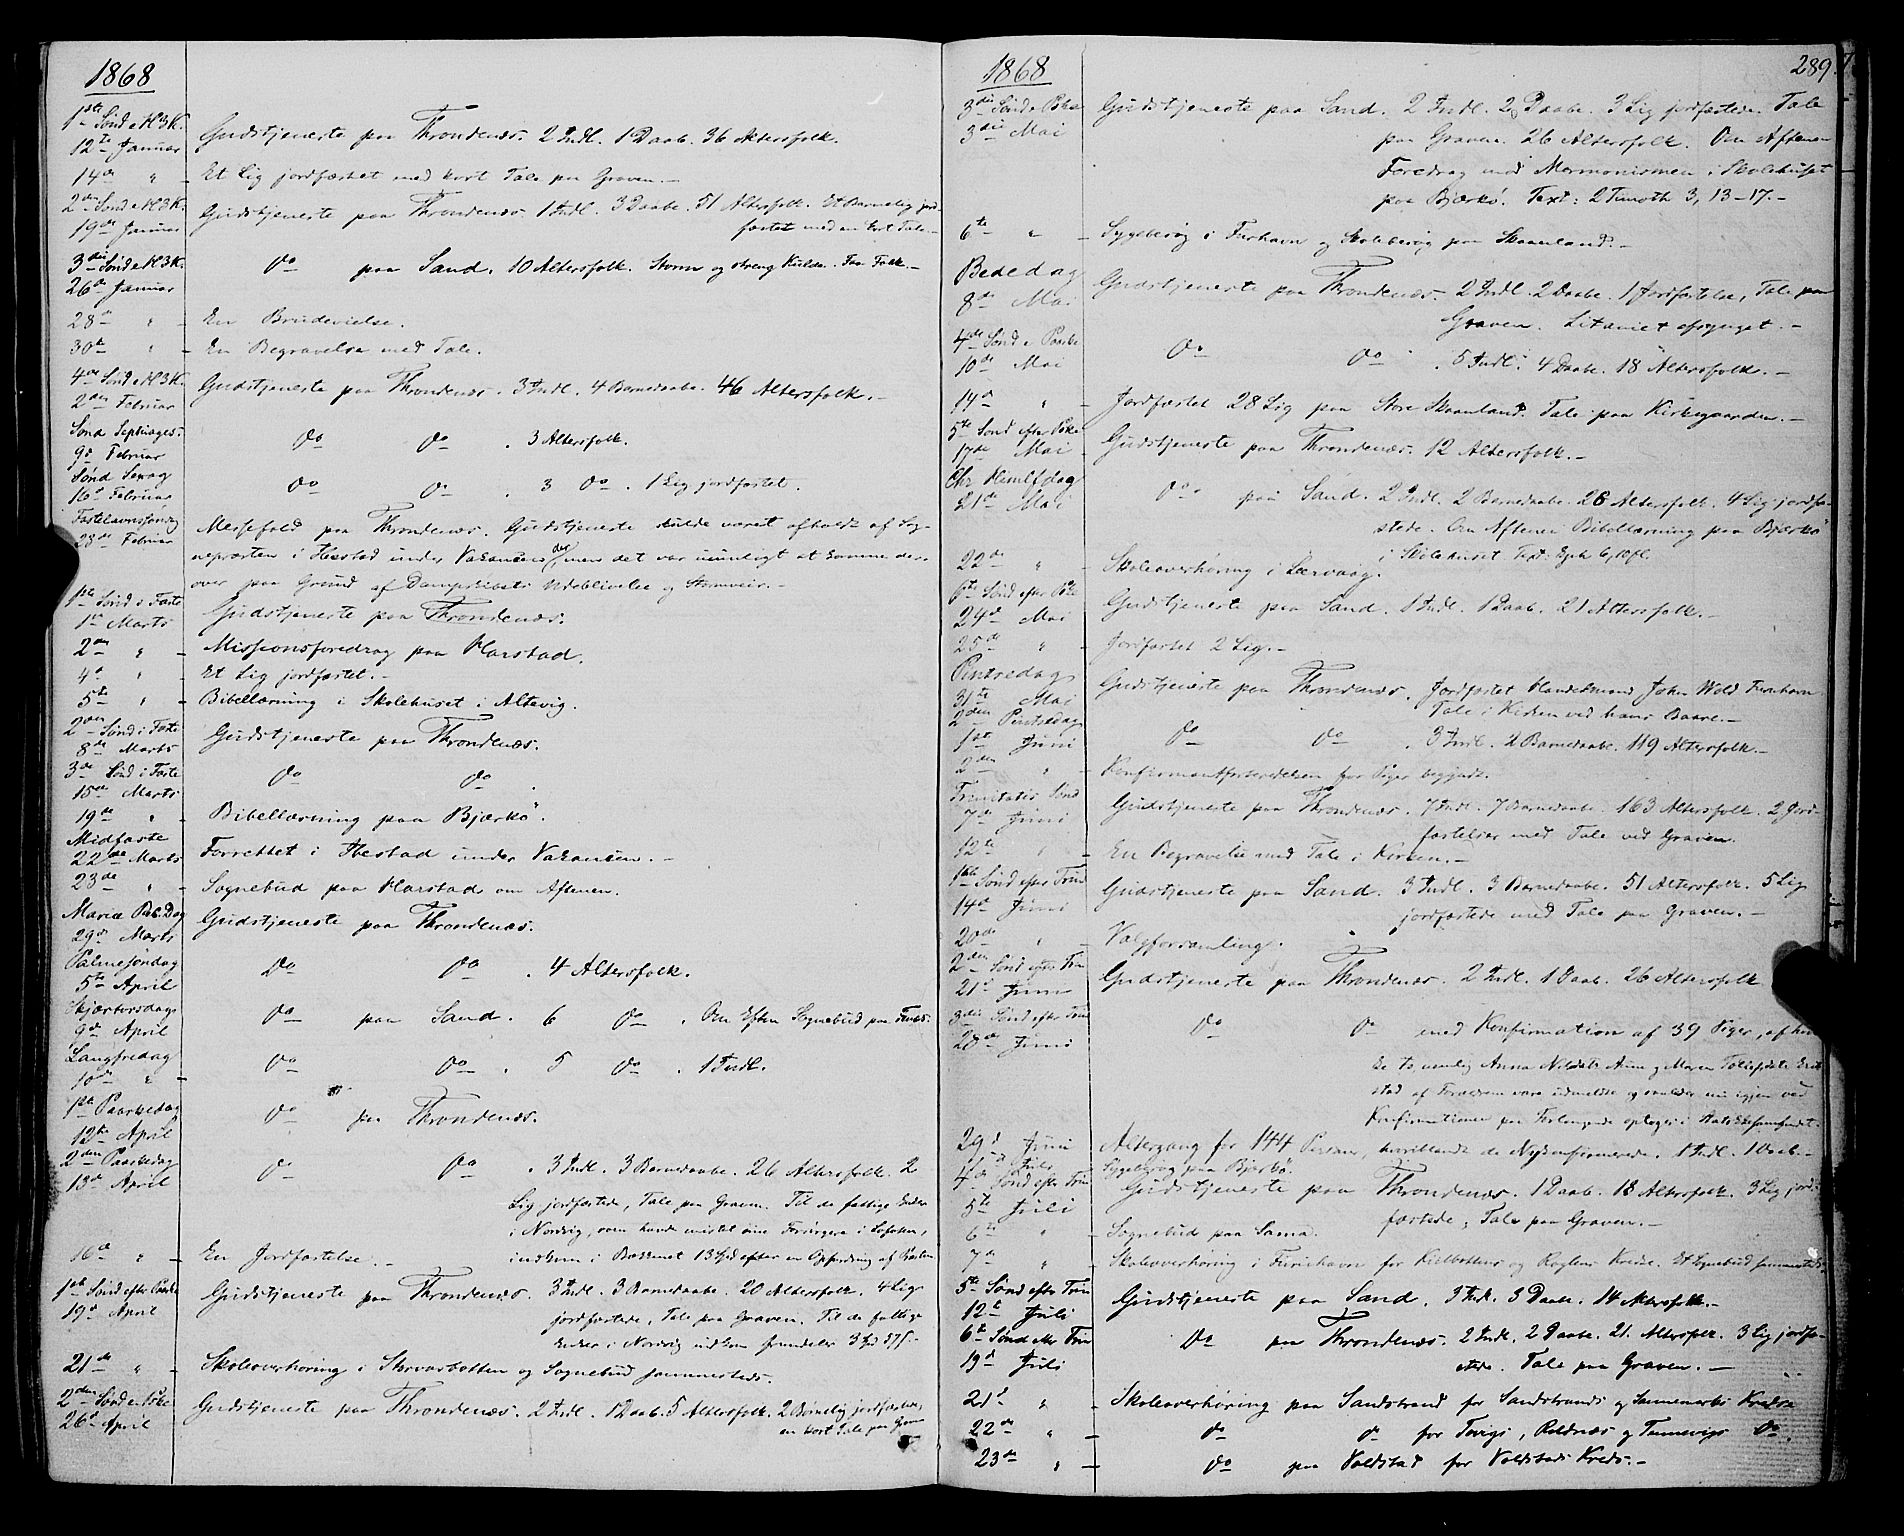 1868
1ste Sønd e H 3 K.
12te Januar Gudstjeneste paa Throndenæs. 2 Indl. 1 Daab. 36 Altersfolk.
14de " - Et Lig jordfæstet med kort Tale paa Graven. -
2den Sønd e H 3 K. Gudstjeneste paa Throndenæs. 1 Indl. 3 Daabe. 51 Altersfolk. Et Barnelig jord-
19de Januar fæstet med en kort Tale. -
3die Sønd e H 3 K. do paa Sand. 10 Altersfolk. Storm og streng Kulde. Faa Folk. -
26de Januar
28de " - En Brudevielse.
30te " - En Begravelse med Tale.
4de Sønd e H 3 K. Gudstjeneste paa Throndenæs. 3 Indl. 4 Barnedaabe. 46 Altersfolk. -
2den Februar
Sønd Septuages: do do . 3 Altersfolk.
9de Februar
Sønd Sexag do do . 3 do . 1 Lig jordfæstet.
16de Februar
Fastelavnssøndag Messefald paa Throndenæs. Gudstjeneste skulde været afholdt af Sog-
23de Februar nepræsten i Ibestad under Vakancen der, men det var umuligt at komme der-
over paa Grund af Dampskibets Udeblivelse og Stormveir. -
1ste Sønd i Faste Gudstjeneste paa Throndenæs.
1ste Marts
2den " - Missionsforedrag paa Harstad.
4de " - Et Lig jordfæstet. -
5te " - Bibellæsning i Skolehuset i Altevig.
2den Sønd i Faste Gudstjeneste paa Throndenæs.
8de Marts
3die Sønd i Faste do do .
15de Marts
19de " - Bibellæsning paa Bjærkö.
Midfaste
22de Marts Forrettet i Ibestad under Vakancen. -
23de " - Sognebud paa Harstad om Aftenen.
Mariæ Beb. Dag Gudstjeneste paa Throndenæs.
29de Marts
Palmesøndag Do do . 4 Altersfolk.
5te April
Skjærtorsdag do paa Sand. 6 do . Om Eften Sognebud paa
9de April
Langfredag do do . 5 do . 1 Indl.
10de " -
1ste Paaskedag do paa Throndenæs.
12te April
2den Paaskedag do do . 3 Indl. 3 Barnedaabe. 26 Altersfolk. 2
13de April Lig jordfæstede, Tale paa Graven. Til de fattige Enker
i Nordvig, som havde mistet sine Forsörgere i Lofoten,
16de " - En Jordfæstelse. - indkom i Bækkenet 13 Spd efter en Opfordring af Præsten
1ste Sønd efter Paaske Gudstjeneste paa Throndenæs. 3 Indl. 3 Barnedaabe. 20 Altersfolk. 4 Lig
19de April jordfæstede, Tale paa Graven. Til de fattige
Enker i Nordvig indkom fremdeles 3 Spd
21de " - Skoleoverhøring i Skrovarbotten og Sognebud sammesteds.
2den Sønd e Paaske Gudstjeneste paa Throndenæs. 2 Indl. 1 Daab. 5 Altersfolk. 2 Børnelig jordfæstede,
26de April en kort Tale paa Graven
1868 289.
3die Sønd e Paaske Gudstjeneste paa Sand. 2 Indl. 2 Daabe. 3 Lig jordfæstede. Tale
3die Mai paa Graven. 26 Altersfolk. Om Aftenen
Foredrag mod Mormonismen i Skolehuset
paa Bjærkö. Text: 2 Timoth 3, 13-17. -
6te " - Sygebesøg i Fushavn og Skolebesøg paa Skaanland. -
Bededag Gudstjeneste paa Throndenæs. 2 Indl. 2 Daabe. 1 Jordfæstelse, Tale paa
8de Mai Graven. Litaniet afsynget. -
4de Sønd e Paaske do do . 5 Indl. 4 Daabe. 18 Altersfolk. -
10de Mai
14de " - Jordfæstet 28 Lig paa Store Skaanland. Tale paa Kirkegaarden. -
5te Sønd efter Paaske Gudstjeneste paa Throndenæs. 12 Altersfolk. -
17de Mai
Chr Himlfdag do paa Sand. 2 Indl. 2 Barnedaabe. 26 Altersfolk. 4 Lig jordfæ-
21de Mai stede. Om Aftenen Bibellæsning paa Bjærkö
i Skolehuset Text: Eph: 6, 10 fl.
22de " Skoleoverhøring i Lærvaag.
6te Sønd efter Paaske Gudstjeneste paa Sand. 1 Indl. 1 Daab. 21 Altersfolk. -
24de Mai
25de " - Jordfæstet 2 Lig. -
Pintsedag Gudstjeneste paa Throndenæs. Jordfæstet Handelsmand John Wold
31te Mai Tale i Kirken ved hans Baare. -
2den Pintsedag do do . 3 Indl. 2 Barnedaabe. 119 Altersfolk. -
1ste Juni
2den " - Konfirmantforberedelsen for Piger begyndt.
Trinitatis Sønd Gudstjeneste paa Throndenæs. 7 Indl. 7 Barnedaabe. 163 Altersfolk. 2 Jord-
7de Juni fæstelser med Tale ved Graven.
12te " - En Begravelse med Tale i Kirken. -
1ste Sønd efter Trin Gudstjeneste paa Sand. 3 Indl. 3 Barnedaabe. 51 Altersfolk. 5 Lig
14de Juni jordfæstede med Tale paa Graven. -
20de " - Valgforsamling.
2den Sønd efter Trin Gudstjeneste paa Throndenæs. 2 Indl. 1 Daab. 26 Altersfolk
21de Juni
3die Sønd efter Trin do do med Konfirmation af 39 Piger, af hvil-
28de Juni ke to nemlig Anna Nilsdatr og Maren
stad af Forældrene vare udmeldte og meldte nu igjen ved
Konfirmationen paa Forlangende optaget i Statskirkesamfundet.
29de Juni Altergang for 144 Personer, hvoriblandt de Nykonfirmerede. 1 Indl. 1 Daab. -
Juli Sygebesøg paa Bjærkö.
4de Sønd efter Trin Gudstjeneste paa Throndenæs. 1 Daab. 18 Altersfolk. 3 Lig jord-
5te Juli fæstede, Tale paa Graven. -
6te " Sognebud paa Sama.
7de " Skoleoverhøring i Furuhavn for Kilbotten og Kreds. Et Sognebud sammesteds.
5te Sønd efter Trin Gudstjeneste paa Sand. 3 Indl. 3 Daabe. 14 Altersfolk. -
12te Juli
6te Sønd efter Trin do paa Throndenæs. 2 Indl. 2 Daabe. 21. Altersfolk. 3 Lig jordfæ-
19de Juli stede. Tale paa Graven. -
21de " - Skoleoverhøring paa Sandstrand for Sandstrands og Kredse
22de " - do do for Tovigs, Roldnæs og Tennevigs Do.
23de " - do paa Voldstad for Voldstads Kreds. -